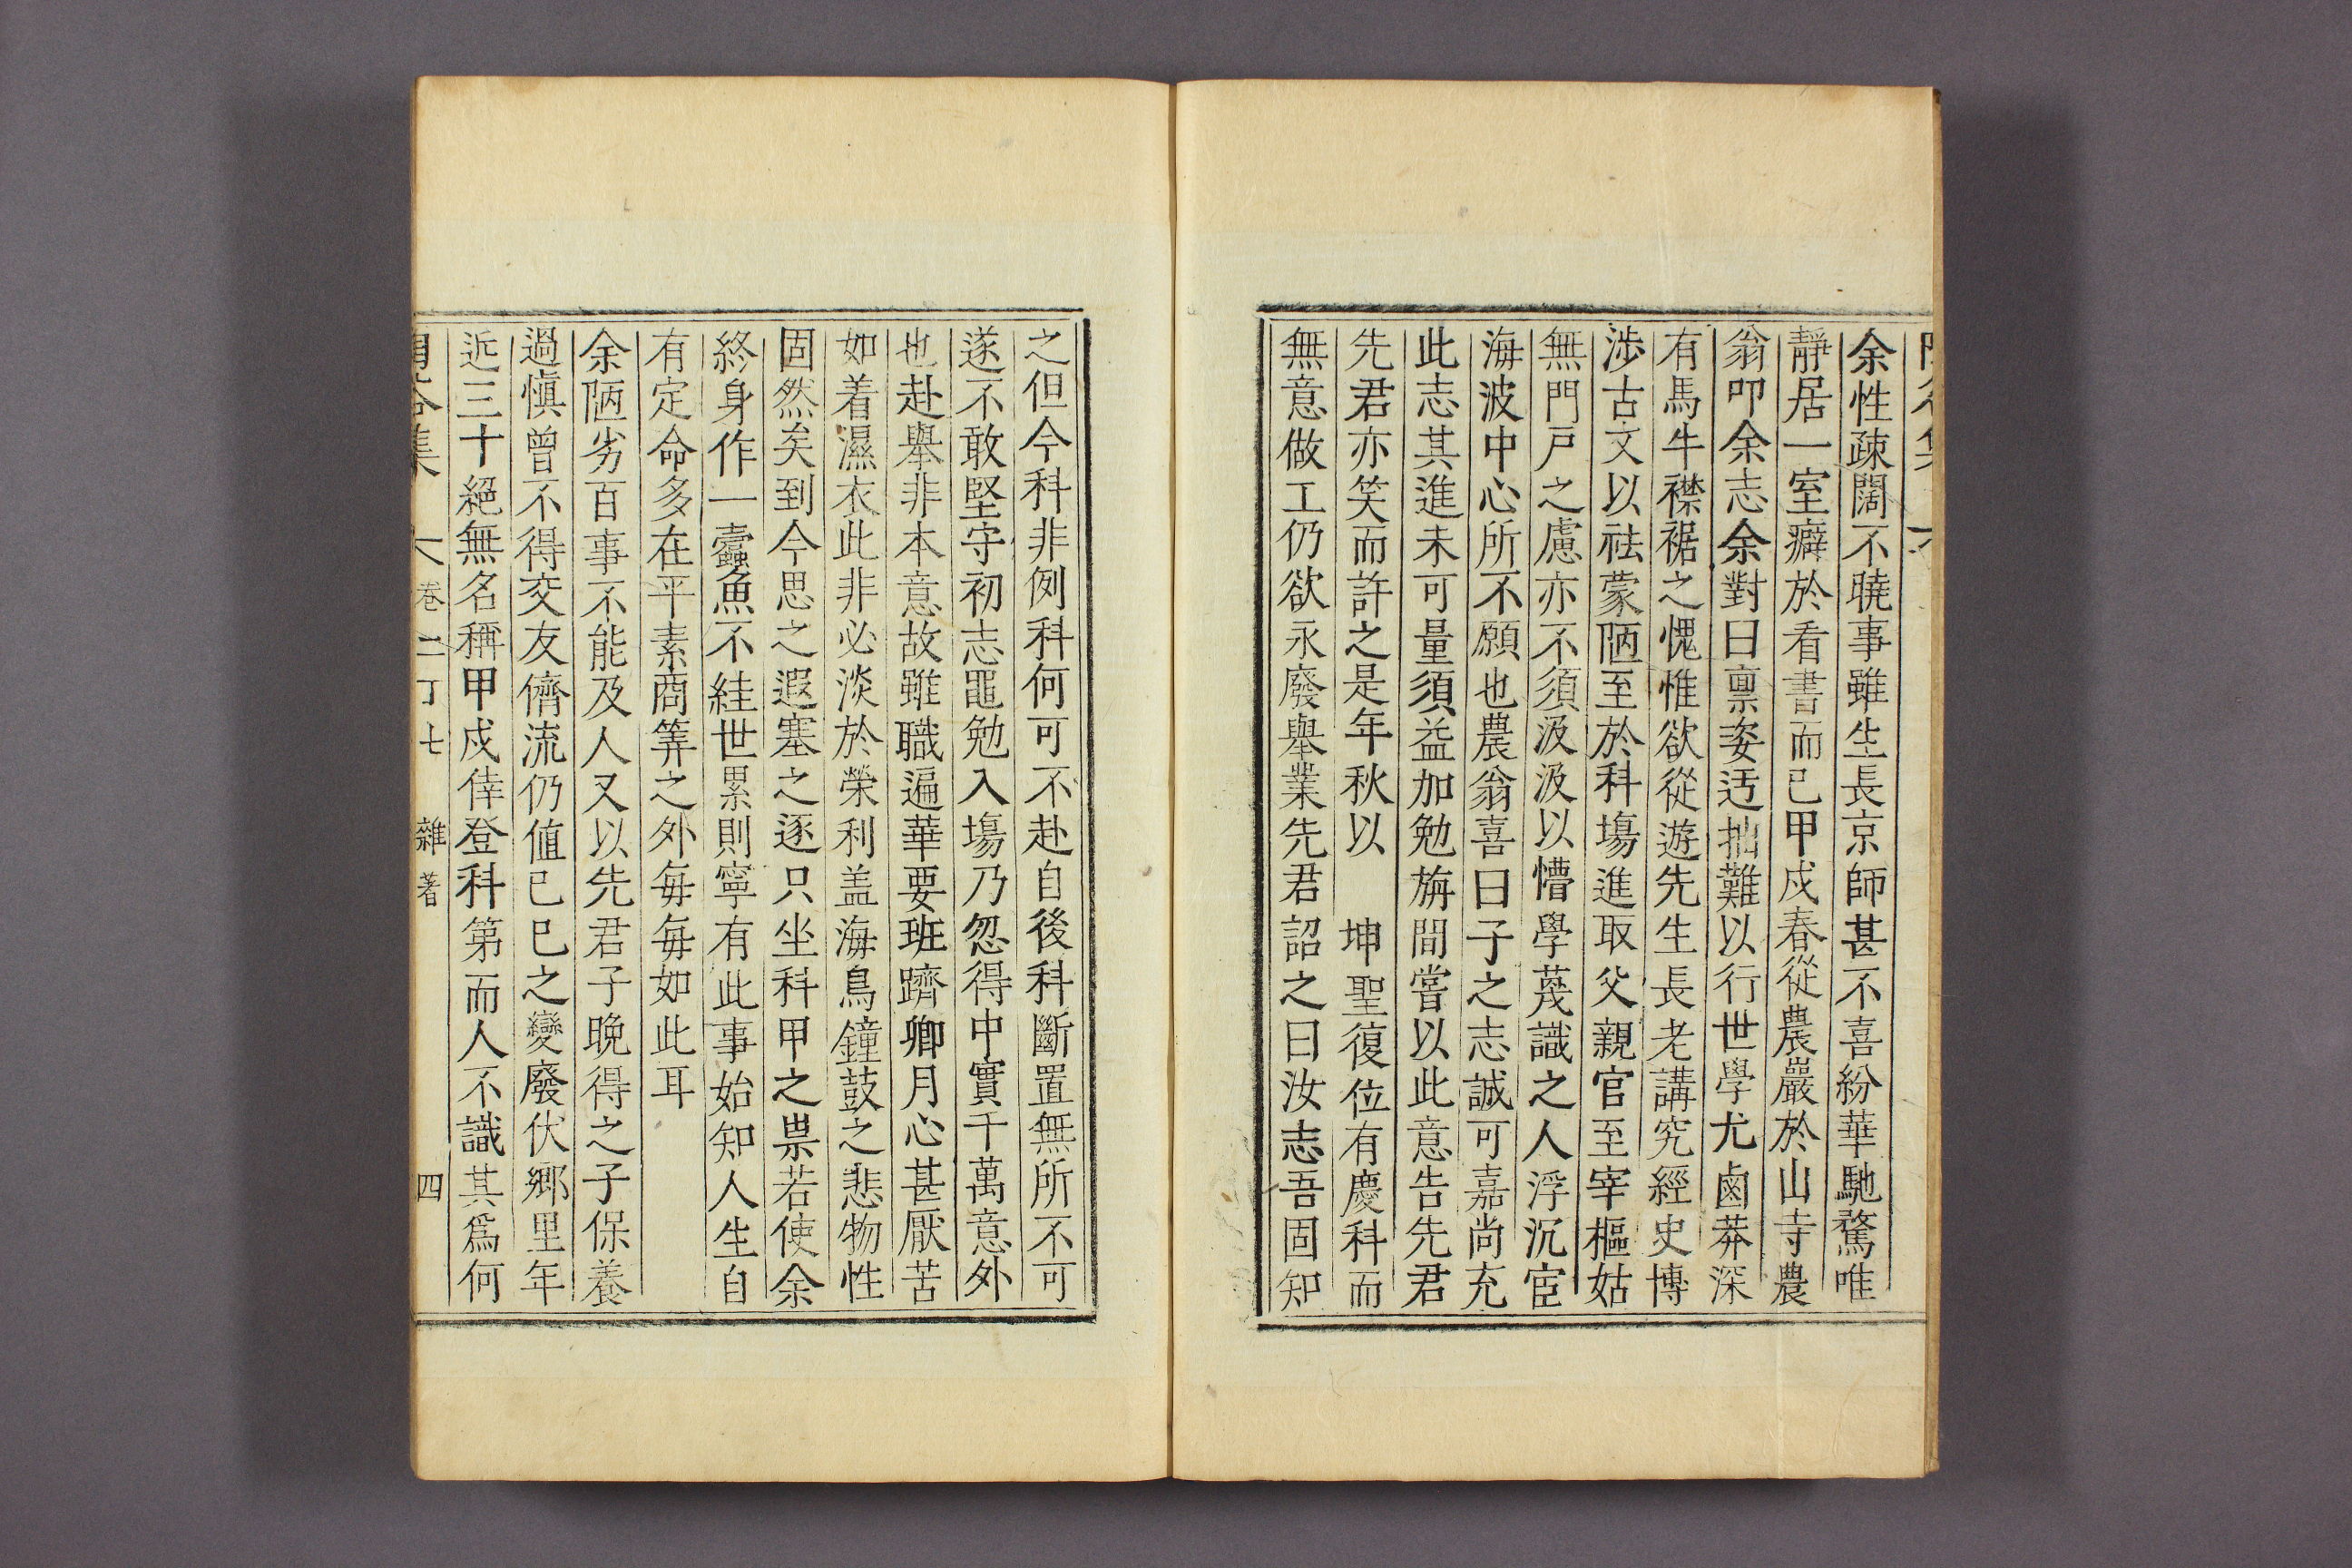 余性疎闊不曉事雖生長京師甚不喜紛華馳騖唯
靜居一室癖於看書而已甲戌春從農巖於山寺農
翁叩余志余對曰禀姿迃拙難以行世學尤鹵莽深
有馬牛襟裾之愧惟欲從遊先生長老講究經史博
涉古文以祛蒙陋至於科塲進取父親官至宰樞姑
無門戶之慮亦不須汲汲以懵學蔑識之人浮沉宦
海波中心所不願也農翁喜曰子之志誠可嘉尚充
此志其進未可量須益加勉旃間嘗以此意告先君
先君亦笑而許之是年秋以 坤聖復位有慶科而
無意做工仍欲永廢舉業先君詔之曰汝志吾固知
之但今科非例科何可不赴自後科斷置無所不可
遂不敢堅守初志黽勉入塲乃忽得中實千萬意外
也赴舉非本意故雖職遍華要班躋卿月心甚厭苦
如着濕衣此非必淡於榮利盖海鳥鐘鼓之悲物性
固然矣到今思之遐塞之逐只坐科甲之祟若使余
終身作一蠹魚不絓世累則寧有此事始知人生自
有定命多在平素商筭之外每每如此耳
余陋劣百事不能及人又以先君子晚得之子保養
過愼曾不得交友儕流仍值己巳之變廢伏鄉里年
近三十絕無名稱甲戌倖登科第而人不識其爲何
集 卷二丁七 雜著 四